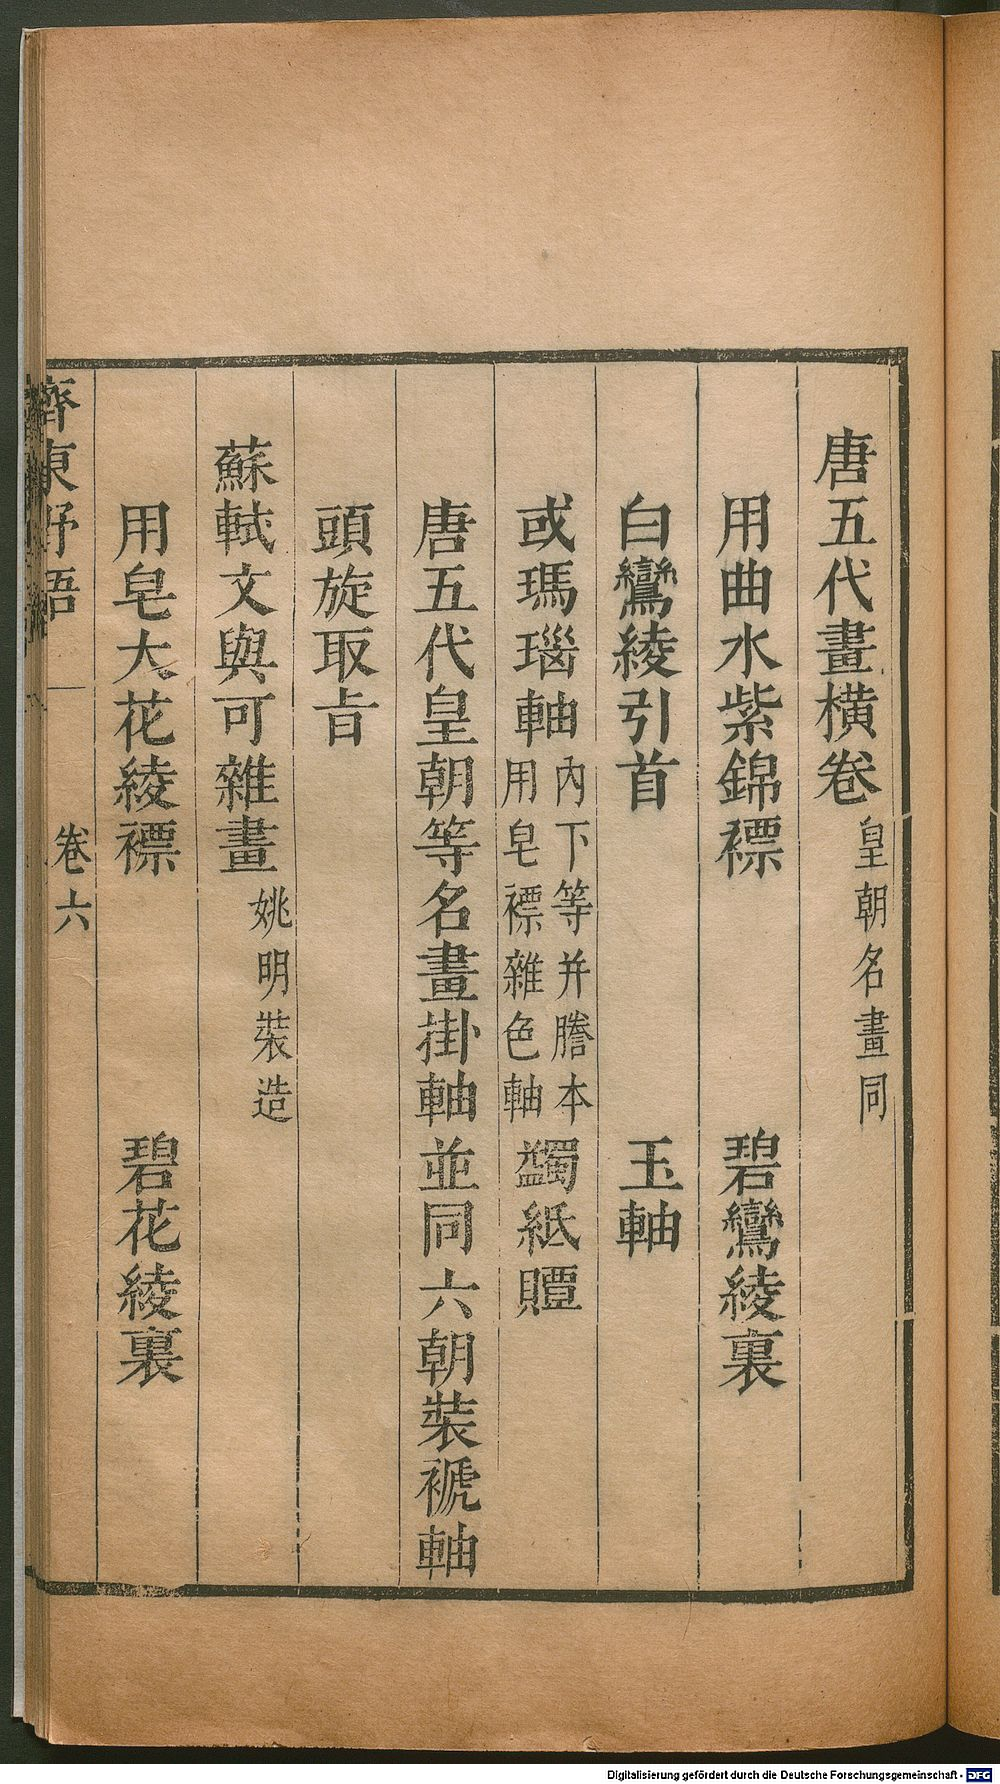 唐五代畫橫卷皇朝名畫同
用曲水紫錦褾　碧鸞綾裏
白鸞綾引首　玉軸
或瑪瑙軸內下等并謄本用皂褾雜色軸蠲紙贉
唐五代皇朝等名畫掛軸並同六朝裝褫軸
頭旋取旨
蘇軾文與可雜畫姚明裝造
用皂大花綾褾　碧花綾裏
齊東野語　卷六
Digitalisierung gefördert durch die Deutsche Forschungsgemeinschaft - DFG